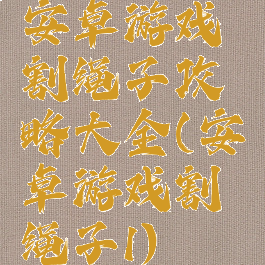 安卓游戏
割绳子攻
略大全(安
卓游戏割
绳子1)